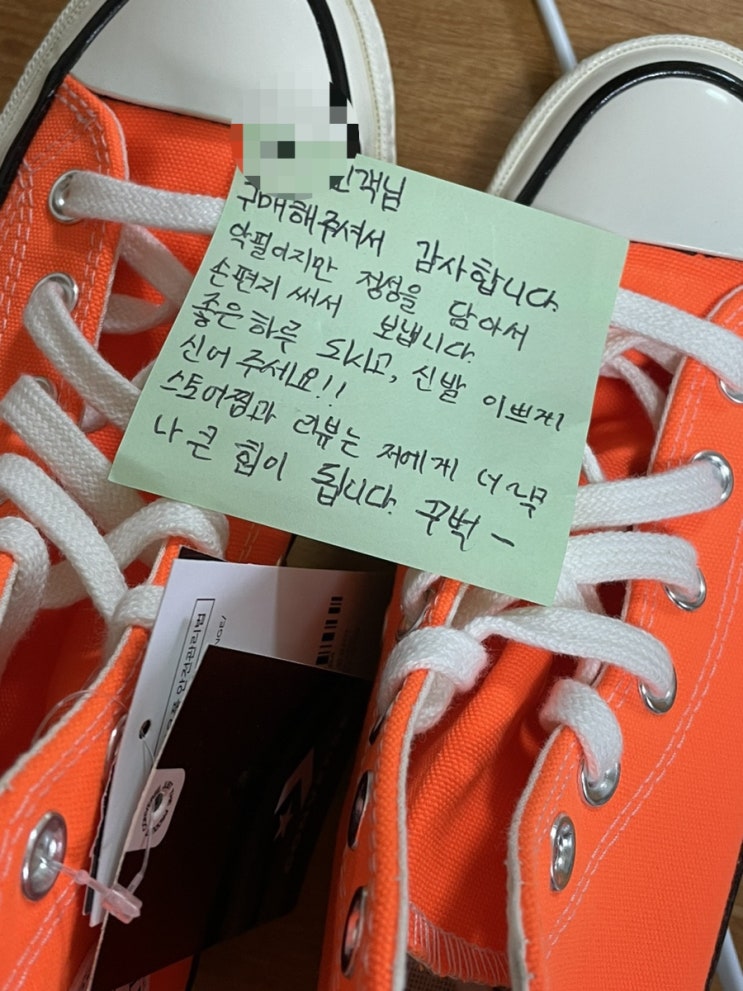 고객님
구매해주셔서 감사합니다.
악필이지만 정성을 담아서
손편지 써서 보냅니다.
좋은하루 되시고, 신발 이쁘게
신어 주세요!!
스토어찜과 리뷰는 저에게 너무
나 큰 힘이 됩니다. 꾸벅 -